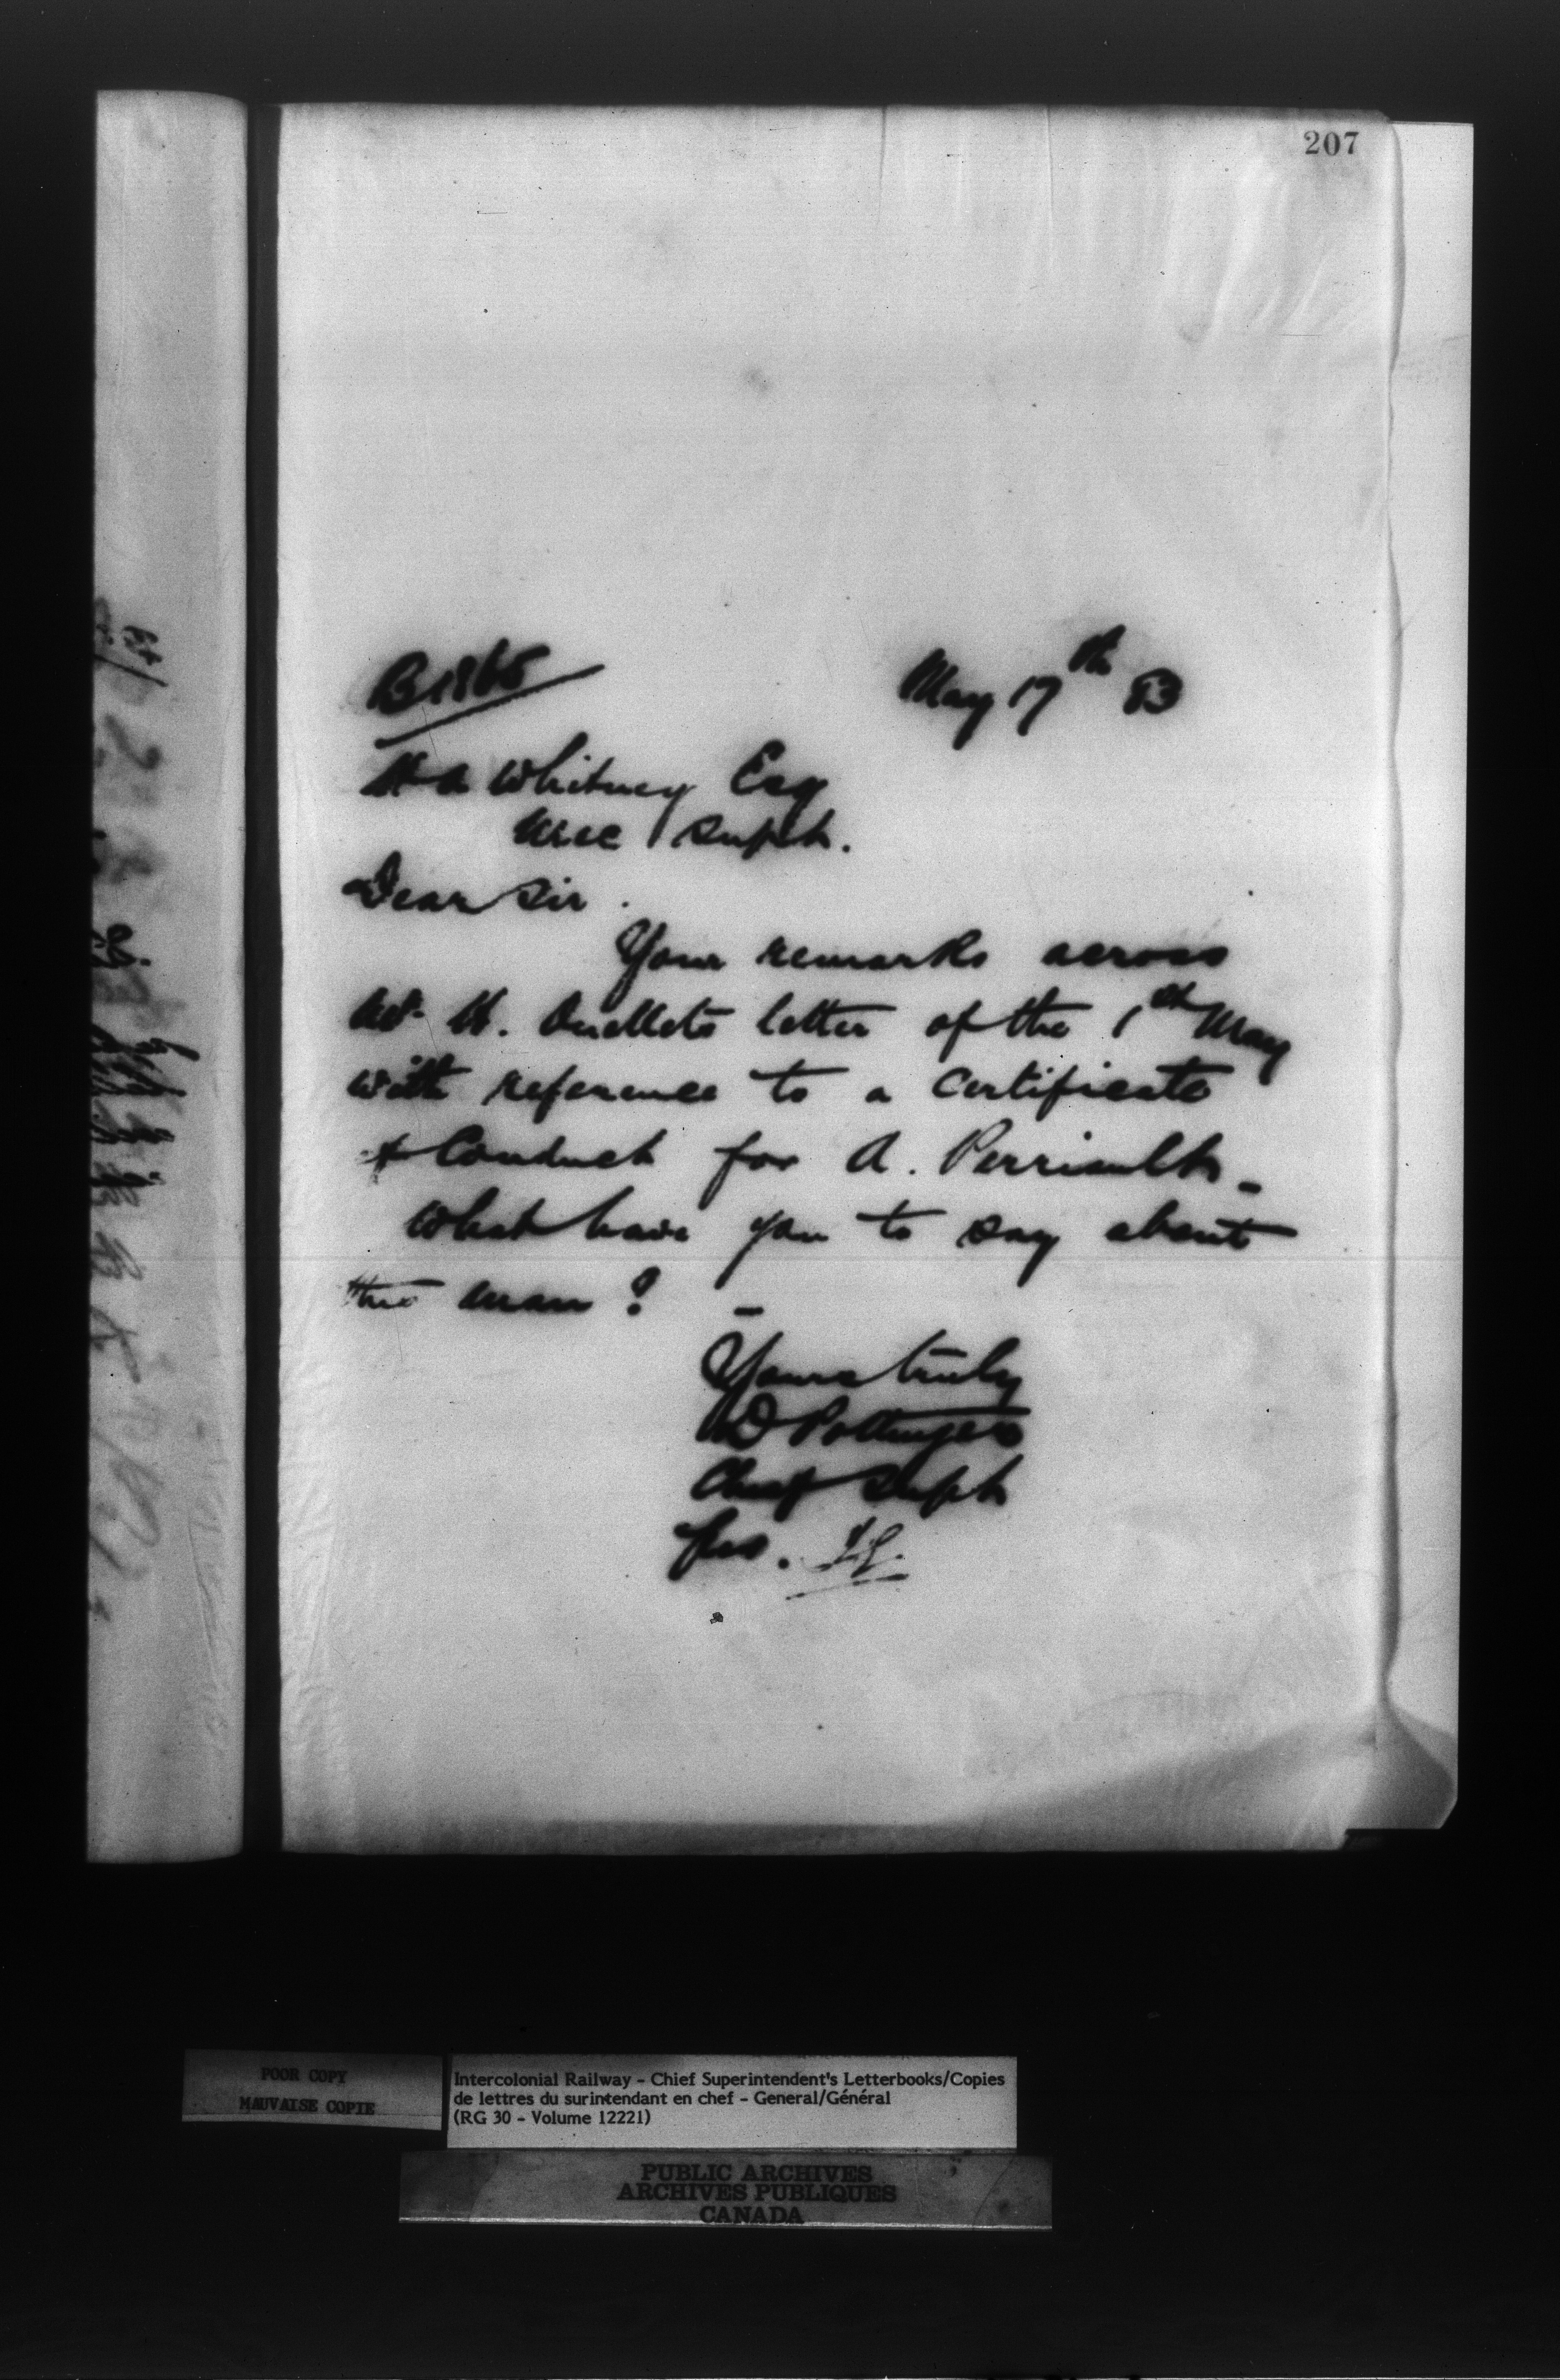 207
B1865
May 17th 83
H A Whitney Esq
Mec Supt.
Dear Sir.
Your remarks across
H. Ouellets letter of the 1st May
with reference to a certificate
of Conduct for A. Perriault_
What have you to say about
this man? _
Yours truly
D Pottinger
Chief Supt
pro.
POOR COPY
MAUVAISE COPIE
Intercolonial Railway - Chief Superintendent's Letterbooks/Copies
de lettres du surintendant en chef - General/Général
(RG 30 - Volume 12221)
PUBLIC ARCHIVES
ARCHIVES PUBLIQUES
CANADA